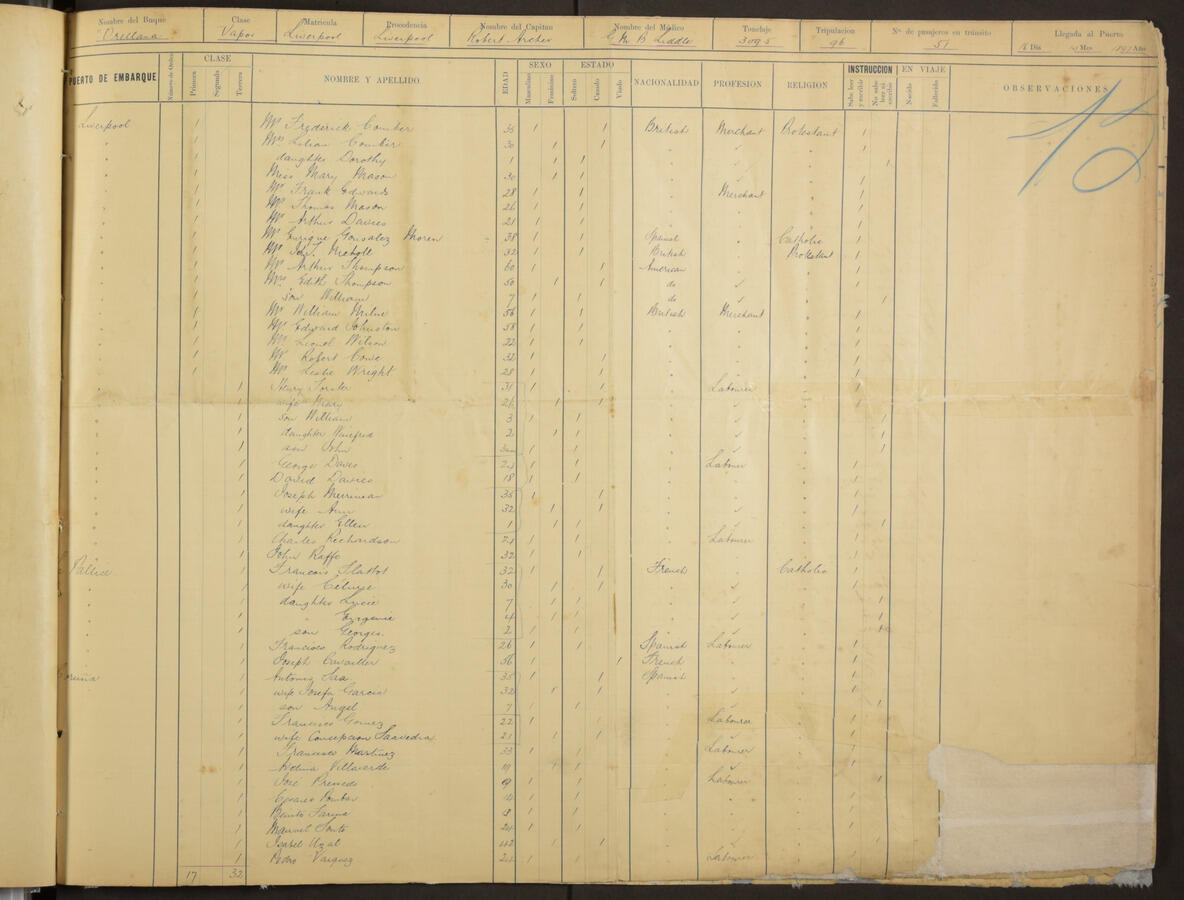 Nombre del Buque Clase Matricula Procedencia Nombre del Capitan Nombre del Médico Tonelaje Tripulacion Nº de pasajeros en tránsito Llegada al Puerto
Orellana Vapor Liverpool Liverpool Robert Archer G M B Liddle 3095 96 51 Dia Mes Año
PUERTO DE EMBARQUE Número de Orden CLASE NOMBRE Y APELLIDO EDAD SEXO ESTADO NACIONALIDAD PROFESION RELIGION INSTRUCCION EN VIAJE OBSERVACIONES
Primera Segunda Tercera Masculino Femenino Soltero Casado Viudo Sabe leer y escribir No sabe leer ni escribir Nacido Fallecido
Liverpool 1 Mr Frederick Comber 35 1 1 British Merchant Protestant 1
" 1 Mrs Lilian Comber 30 1 1 " ✓ " 1
" 1 daughter Dorothy 1 1 1 " ✓ " 1
" 1 Miss Mary Mason 30 1 1 " ✓ " 1
" 1 Mr Frank Edwards 28 1 1 " Merchant " 1
" 1 Mr Thomas Mason 26 1 1 " " " 1
" 1 Mr Arthur Davies 21 1 1 " " " 1
" 1 Mr Enrique Gonzalez 38 1 1 Spanish " Catholic 1
" 1 Mr Nicholl 32 1 1 British " Protestant 1
" 1 Mr Arthur Thompson 60 1 1 American " " 1
" 1 Mrs Edith Thompson 50 1 1 do ✓ " 1
" 1 son William 7 1 1 do ✓ " 1
" 1 Mr William Milne 56 1 1 British Merchant " 1
" 1 Mr Edward Johnston 58 1 1 " " " 1
" 1 Mr Lionel Wilson 22 1 1 " " " 1
" 1 Mr Robert Cowe 32 1 1 " " " 1
" 1 Mr Leslie Wright 28 1 1 " " " 1
" 1 Henry Forster 31 1 1 " Labourer " 1
" 1 wife Mary 26 1 1 " ✓ " 1
" 1 son William 3 1 1 " ✓ " 1
" 1 daughter Winifred 2 1 1 " ✓ " 1
" 1 son John 1 1 " ✓ " 1
" 1 George Davis 24 1 1 " Labourer " 1
" 1 David Davies 18 1 1 " " " 1
" 1 Joseph Merriman 35 1 1 " " " 1
" 1 wife Ann 32 1 1 " ✓ " 1
" 1 daughter Ellen 1 1 1 " ✓ " 1
" 1 Charles Richardson 24 1 1 " Labourer " 1
" 1 John Raffe 32 1 1 " " " 1
Pallice 1 Francois 32 1 1 French " Catholic 1
" 1 wife 30 1 1 " ✓ " 1
" 1 daughter Lucie 7 1 1 " ✓ " 1
" 1 " Eugenie 4 1 1 " ✓ " 1
" 1 son Georges 2 1 1 " ✓ " 1
" 1 Francisco Rodriguez 26 1 1 Spanish Labourer " 1
" 1 Joseph Cavailler 56 1 1 French " " 1
Coruña 1 Antonio Saa 35 1 1 Spanish " " 1
" 1 wife Josefa Garcia 32 1 1 " ✓ " 1
" 1 son Angel 7 1 1 " ✓ " 1
" 1 Francisco Gomez 22 1 1 " Labourer " 1
" 1 wife Concepcion Saavedra 21 1 1 " ✓ " 1
" 1 Francisco Martinez 33 1 1 " Labourer " 1
" 1 Villaverde 19 1 1 " ✓ " 1
" 1 José 9 1 1 " Labourer " 1
" 1 1 1 " " " 1
" 1 Benito 1 1 " " " 1
" 1 Manuel Souto 24 1 1 " " " 1
" 1 Isabel 1 1 " ✓ " 1
" 1 Pedro Vazquez 1 1 " Labourer " 1
17 32